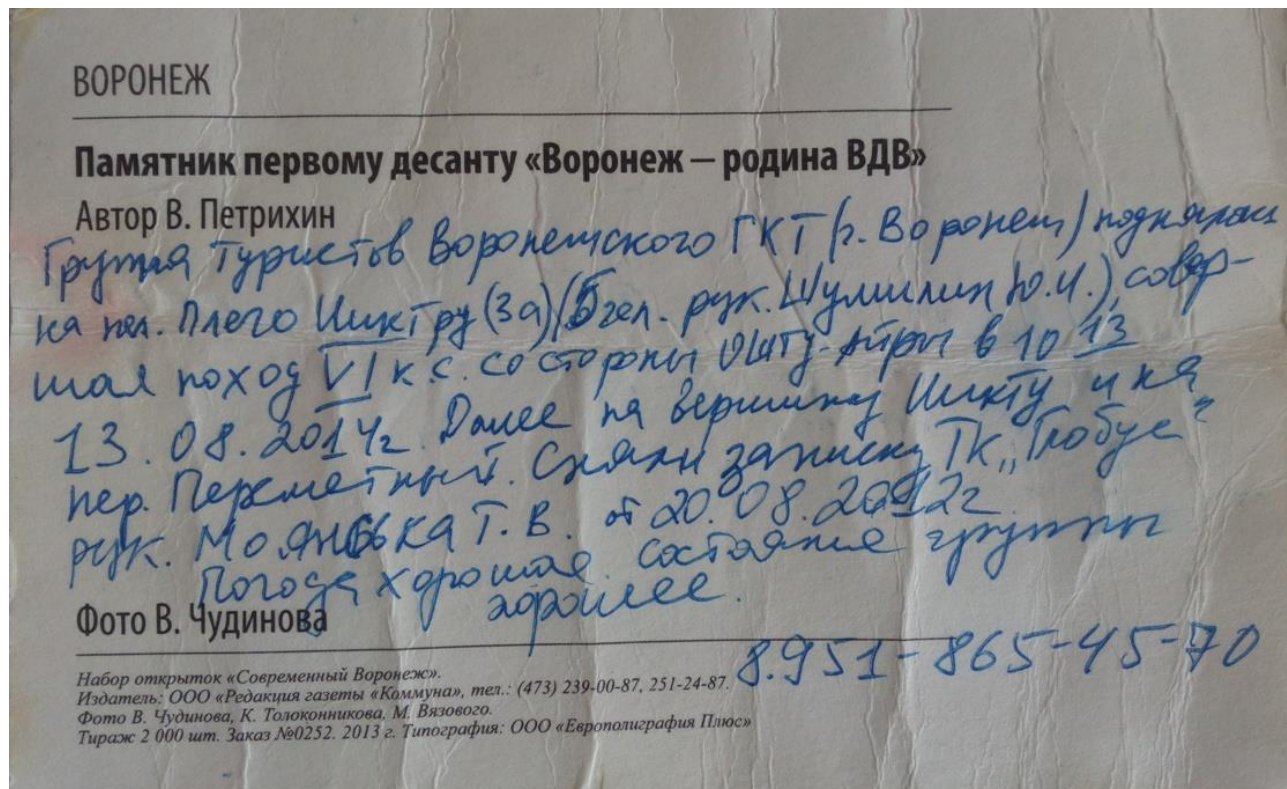 ВОРОНЕЖ
Памятник первому десанту «Воронеж – родина ВДВ»
Автор В. Петрихин
Группа туристов Воронежского ГКТ (г. Воронеж) поднялась
на пер. Плечо Иикту (3а) (5 чел. рук. Шумилин Ю.И.), совер-
шая поход VI к.с. со стороны Иикту-Айры в 10 13
13.08.2014г. Далее на вершину Иикту и на
пер. Переметный. Сняли записку ТК „Глобус"
рук. Т.В. от 20.08.2012г.
Погода хорошая. состояние группы
хорошее.
Фото В. Чудинова
8.951-865-45-70
Набор открыток «Современный Воронеж».
Издатель: ООО «Редакция газеты «Коммуна», тел.: (473) 239-00-87, 251-24-87.
Фото В. Чудинова, К. Толоконникова, М. Вязового.
Тираж 2 000 шт. Заказ №0252. 2013 г. Типография: ООО «Европолиграфия Плюс»